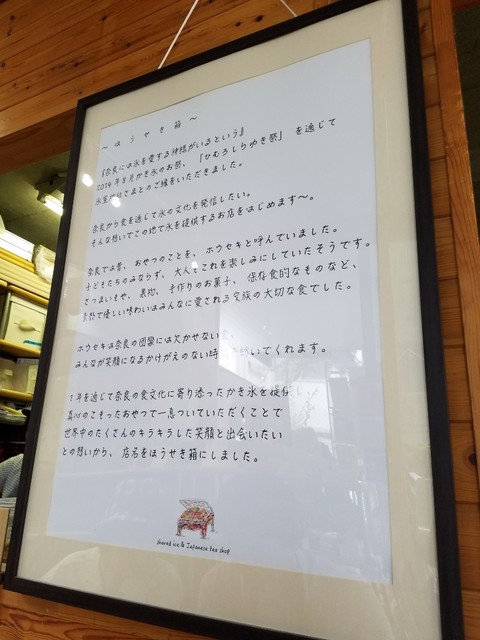 ～ ほうせき箱 ～
『奈良には氷を愛する神様がいるという』
2014年8月かき氷のお祭、「ひむろしらゆき祭」を通じて
氷室神社さまとのご縁をいただきました。
奈良から食を通じて氷の文化を発信したい。
そんな想いでこの地で氷を提供するお店をはじめます～。
奈良では昔、おやつのことを、ホウセキと呼んでいました。
子どもたちのみならず、大人もこれを楽しみにしていたそうです。
さつまいもや、果物、手作りのお菓子、保存食的なものなど、
で優しい味わいはみんなに愛される家族の大切な食でした。
ホウセキは奈良の団欒には欠かせない
みんなが笑顔になるかけがえのない時 いてくれます。
1年を通じて奈良の食文化に寄り添ったかき氷を提供し
真心のこもったおやつで一息ついていただくことで
世界中のたくさんのキラキラした笑顔と出会いたい
との想いから、店名をほうせき箱にしました。
shaved ice & Japanese tea shop